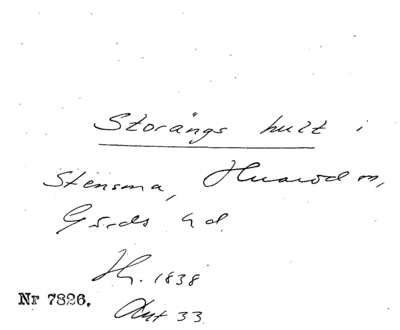 Storängs hult i
Stensma, Huaröd sn,
Gärds hd.
1838
Nr 7826.
Akt 33